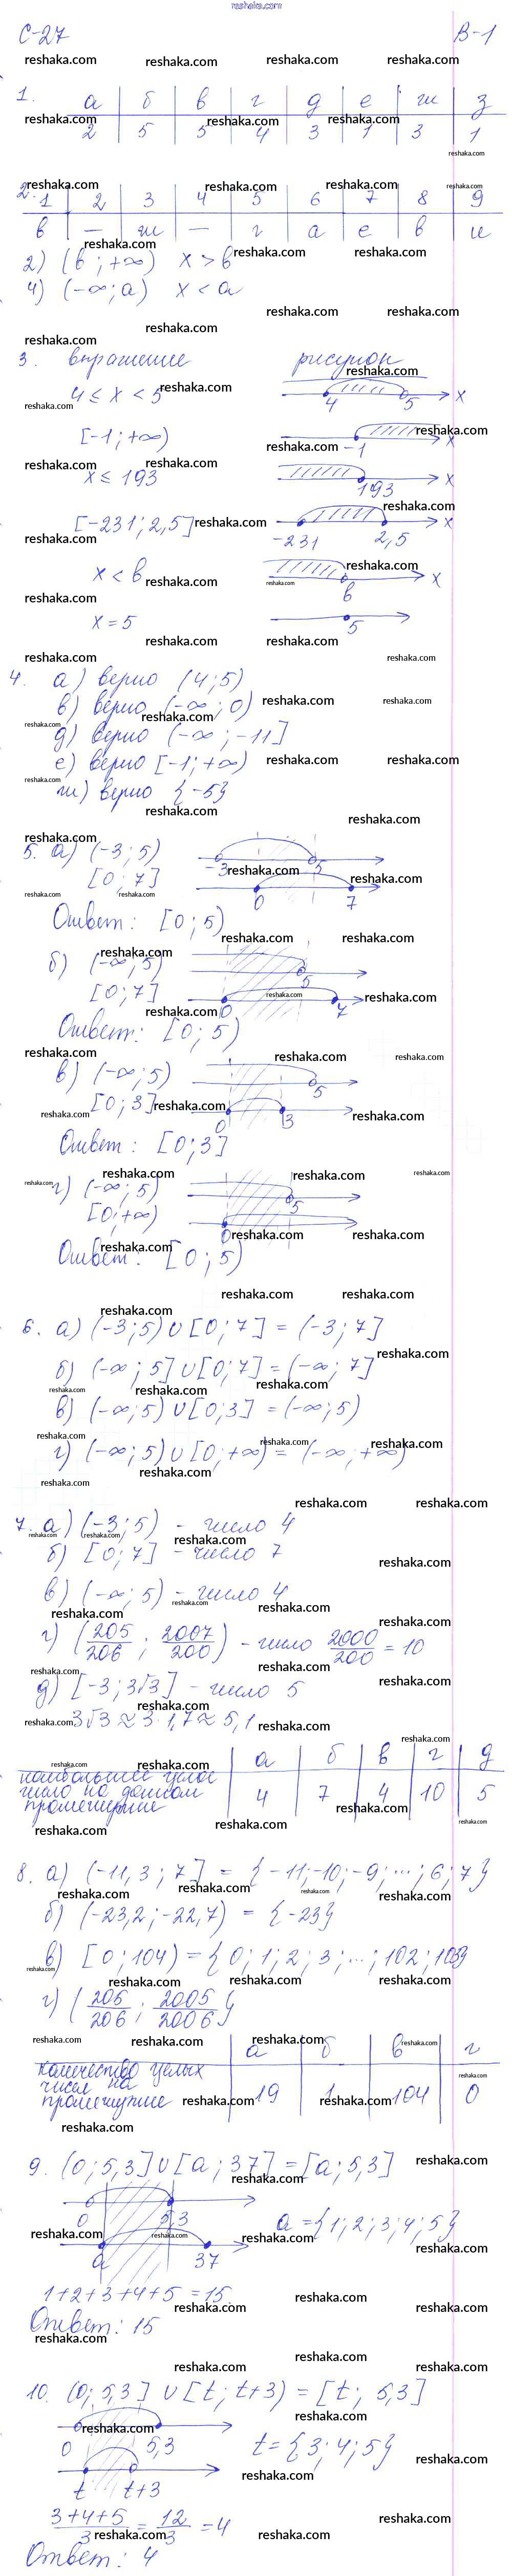 reshaka.com
С-27 В-1
1. а б в г д е ж з
2 5 5 4 3 1 3 1
2. 1 2 3 4 5 6 7 8 9
в — ж — г а е в и
2) (в ; +∞) x > в
4) (-∞; а) x < а
3. выражение рисунок
4 ≤ x < 5 4 5 x
[-1; +∞) -1 x
x ≤ 193 193 x
[-231; 2,5] -231 2,5 x
x < в в x
x = 5 5
4. а) верно (4; 5)
в) верно (-∞; 0)
д) верно (-∞; -11]
е) верно [-1; +∞)
ж) верно {-5}
5. а) (-3; 5) -3 5
[0; 7] 0 7
Ответ: [0; 5)
б) (-∞; 5) 5
[0; 7] 0 7
Ответ: [0; 5)
в) (-∞; 5) 5
[0; 3] 0 3
Ответ: [0; 3]
г) (-∞; 5) 5
[0; +∞) 0
Ответ: [0; 5)
6. а) (-3; 5) ∪ [0; 7] = (-3; 7]
б) (-∞; 5] ∪ [0; 7] = (-∞; 7]
в) (-∞; 5) ∪ [0; 3] = (-∞; 5)
г) (-∞; 5) ∪ [0; +∞) = (-∞; +∞)
7. а) (-3; 5) - число 4
б) [0; 7] - число 7
в) (-∞; 5) - число 4
г) (205/206 ; 2007/200) - число 2000/200 = 10
д) [-3; 3√3] - число 5
3√3 ≈ 3·1,7 ≈ 5,1
а б в г д
наибольшее целое
число на данном
промежутке 4 7 4 10 5
8. а) (-11,3; 7] = {-11; -10; -9; ...; 6; 7}
б) (-23,2; -22,7) = {-23}
в) [0; 104) = {0; 1; 2; 3; ...; 102; 103}
г) (205/206 ; 2005/2006}
а б в г
количество целых
чисел на
промежутке 19 1 104 0
9. (0; 5,3] ∪ [а; 37] = [а; 5,3]
0 5,3
а 37 а = {1; 2; 3; 4; 5}
1+2+3+4+5 = 15
Ответ: 15
10. (0; 5,3] ∪ [t; t+3) = [t; 5,3]
0 5,3 t = {3; 4; 5}
t t+3
3+4+5/3 = 12/3 = 4
Ответ: 4